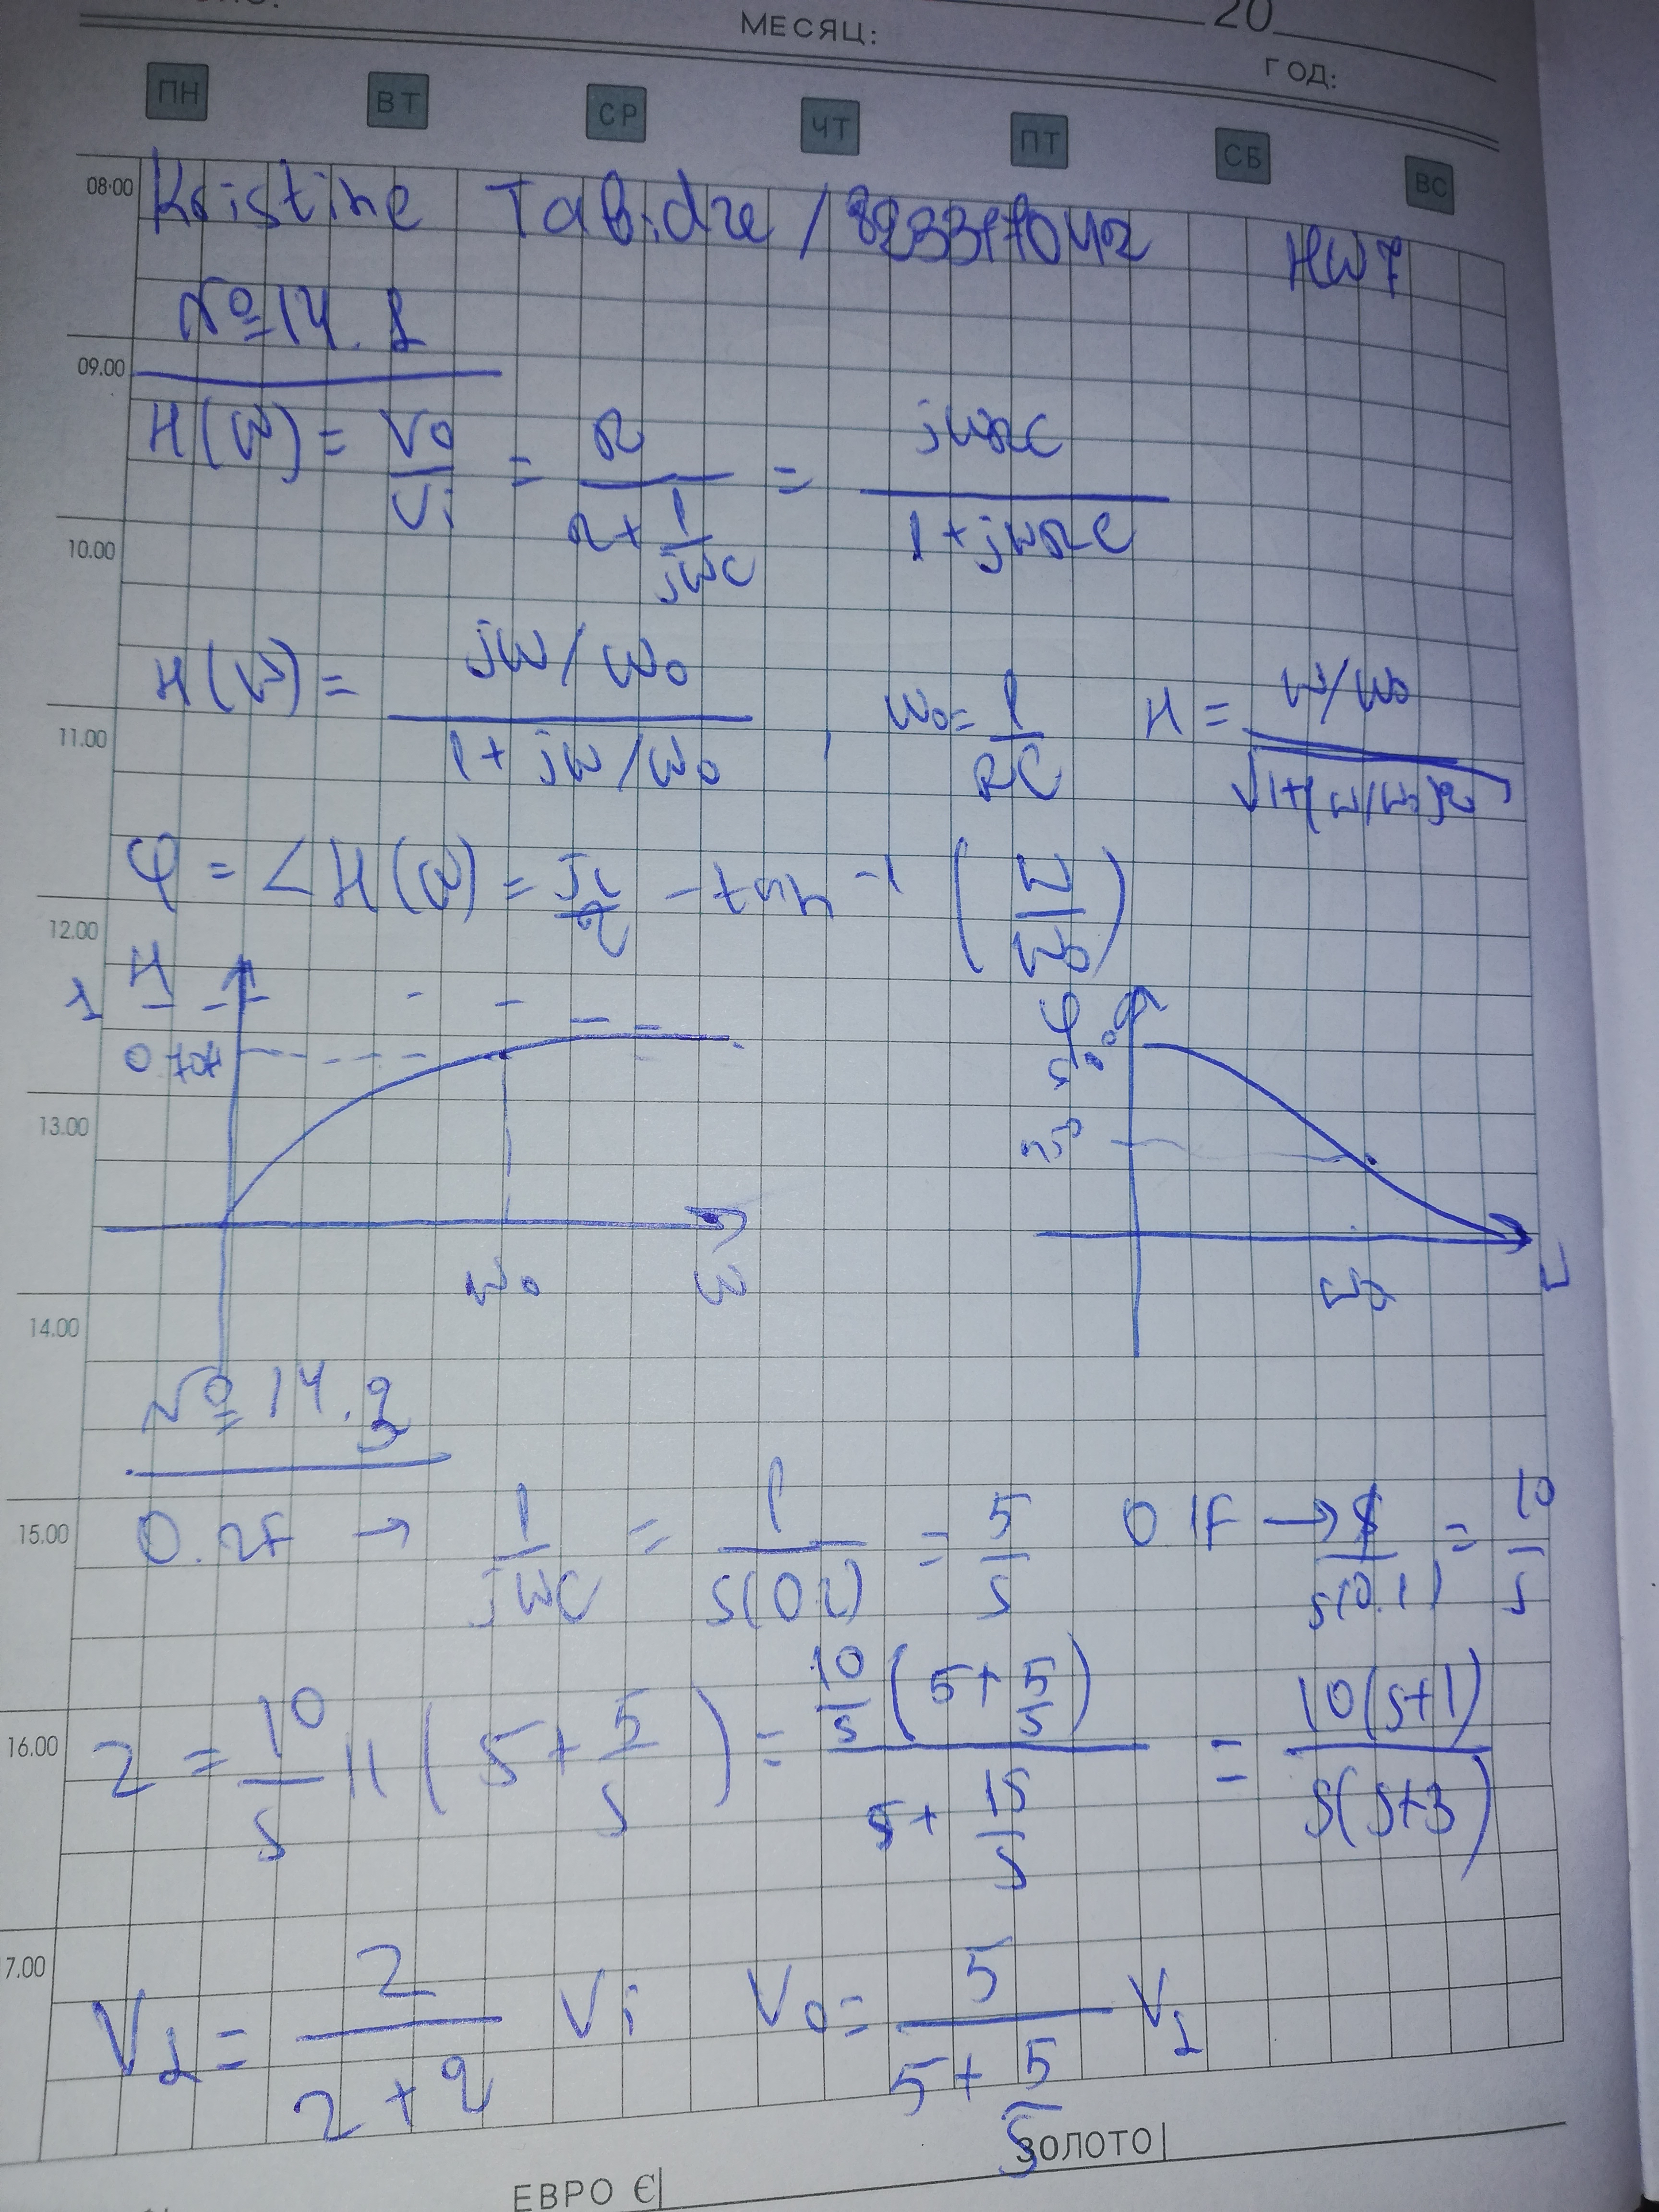 МЕСЯЦ: 20
ГОД:
ПН ВТ СР ЧТ ПТ СБ ВС
08.00 Kristine Tabidze / HW7
№14.1
09.00
H(W) = Vo/Vi = R/(R + 1/jWC) = jWRC/(1 + jWRC)
10.00
H(W) = (jW/W0)/(1 + jW/W0), W0 = 1/RC H = (W/W0)/√(1+(W/W0)2)
11.00
φ = ∠H(W) = π/2 - tan-1 (W/W0)
12.00
H φ
1
0.707
13.00
W0 W W0
14.00
№14.3
15.00 0.2F → 1/jWC = 1/S(0.2) = 5/S 0.1F → 1/S(0.1) = 10/S
16.00 Z = 10/S || (5 + 5/S) = 10/S (5 + 5/S)/(5 + 15/S) = 10(S+1)/S(S+3)
17.00
V1 = Z/(Z + 2) Vi Vo = 5/(5 + 5/S) V1
ЗОЛОТО
ЕВРО €